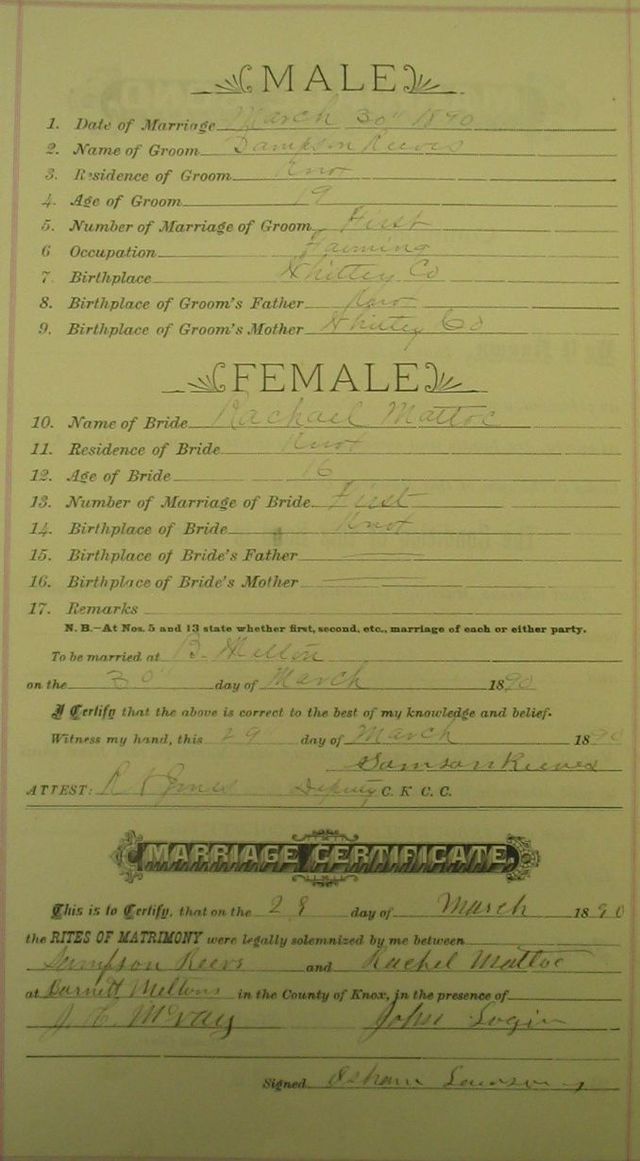 MALE
1. Date of Marriage March 30" 1890
2. Name of Groom Sampson Reeves
3. Residence of Groom Knox
4. Age of Groom 19
5. Number of Marriage of Groom First
6 Occupation Farming
7 Birthplace Whitley Co
8. Birthplace of Groom's Father Knox
9. Birthplace of Groom's Mother Whitley Co
FEMALE
10. Name of Bride Rachael Mattoc
11. Residence of Bride Knox
12. Age of Bride 16
13. Number of Marriage of Bride First
14. Birthplace of Bride Knox
15. Birthplace of Bride's Father
16. Birthplace of Bride's Mother
17. Remarks
N. B.—At Nos. 5 and 13 state whether first, second, etc., marriage of each or either party.
To be married at B. Melton
on the 30" day of March 1890
I Certify that the above is correct to the best of my knowledge and belief.
Witness my hand, this 29" day of March 1890
Samson Reeves
ATTEST: Deputy C. K C. C.
MARRIAGE CERTIFICATE.
This is to Certify, that on the day of March 1890
the RITES OF MATRIMONY were legally solemnized by me between
Sampson Reevs and Rachel Mattoc
at Barnett Meltons in the County of Knox, in the presence of
McVay John Login
Signed